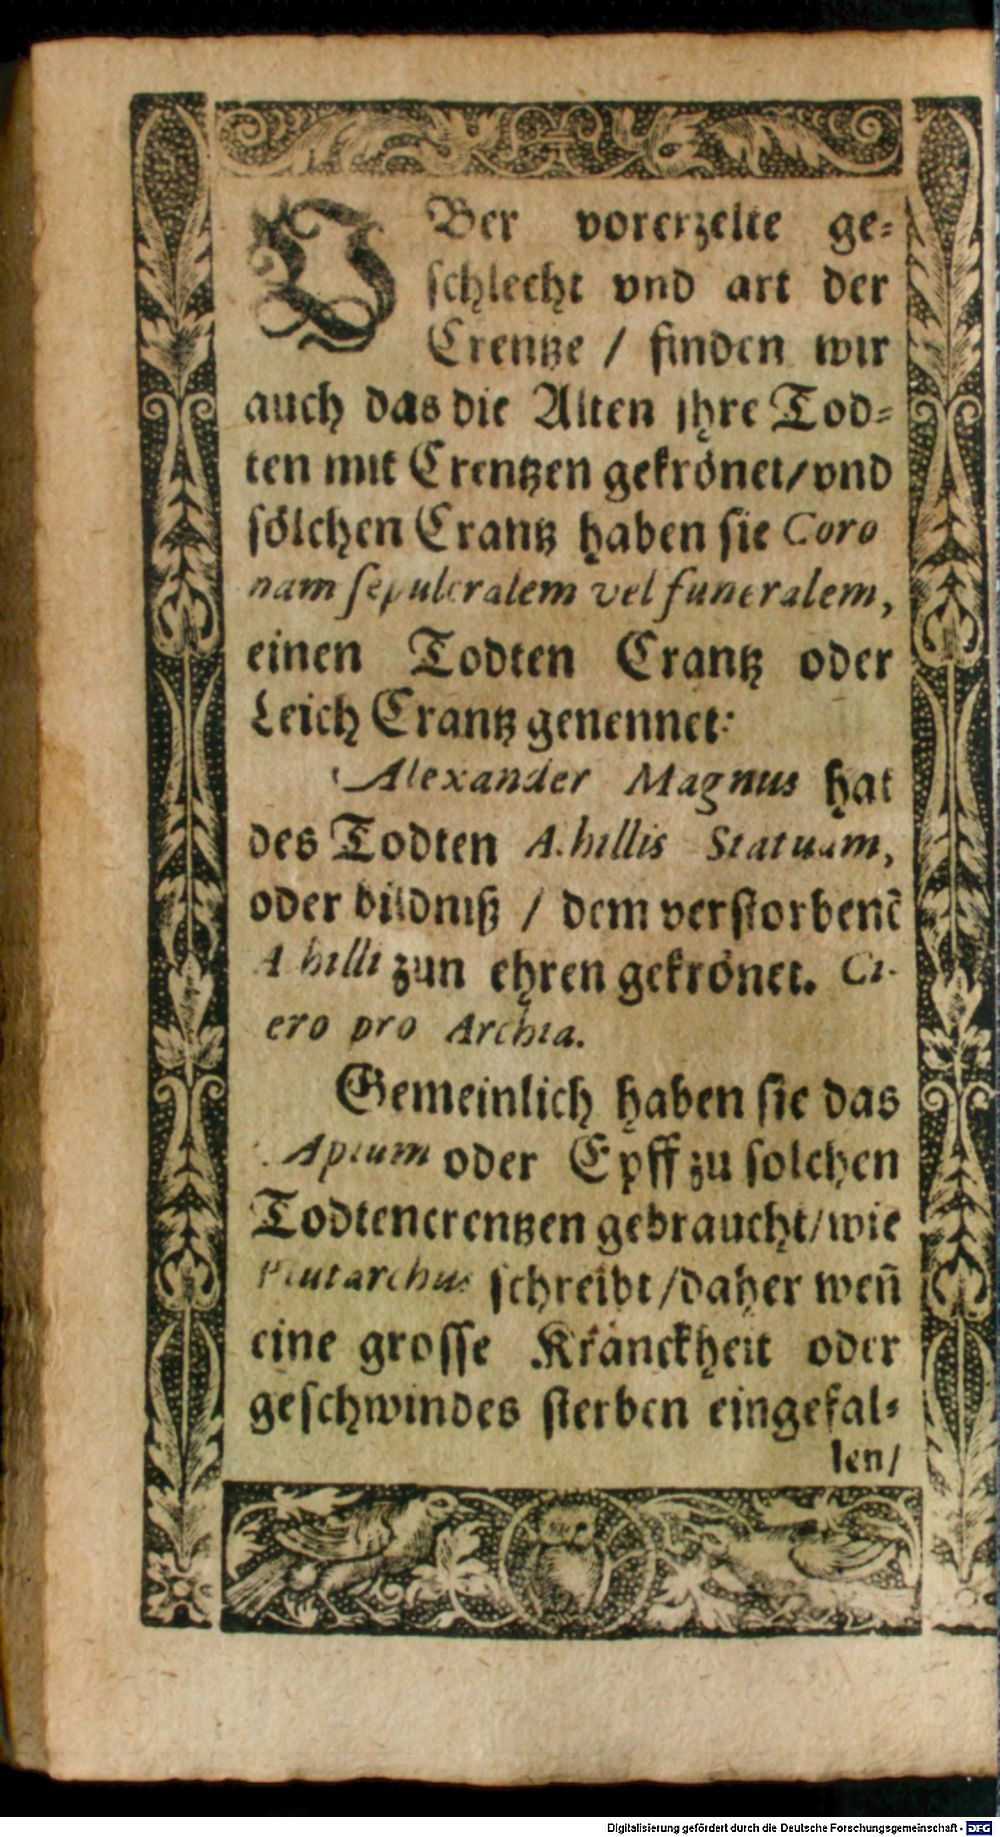 VBer vorerzelte ge-
schlecht vnd art der
Crentze / finden wir
auch das die Alten jhre Tod-
ten mit Crentzen gekrönet / vnd
sölchen Crantz haben sie Coro
nam sepulcralem vel funeralem,
einen Todten Crantz oder
Leich Crantz genennet:
Alexander Magnus hat
des Todten Achillis Statuam,
oder bildniß / dem verstorbenē
Achilli zun ehren gekrönet. Ci-
cero pro Archia.
Gemeinlich haben sie das
Apium oder Epff zu solchen
Todtencrentzen gebraucht / wie
Plutarchus schreibt / daher weñ
eine grosse Kranckheit oder
geschwindes sterben eingefal-
len /
Digitalisierung gefördert durch die Deutsche Forschungsgemeinschaft - DFG